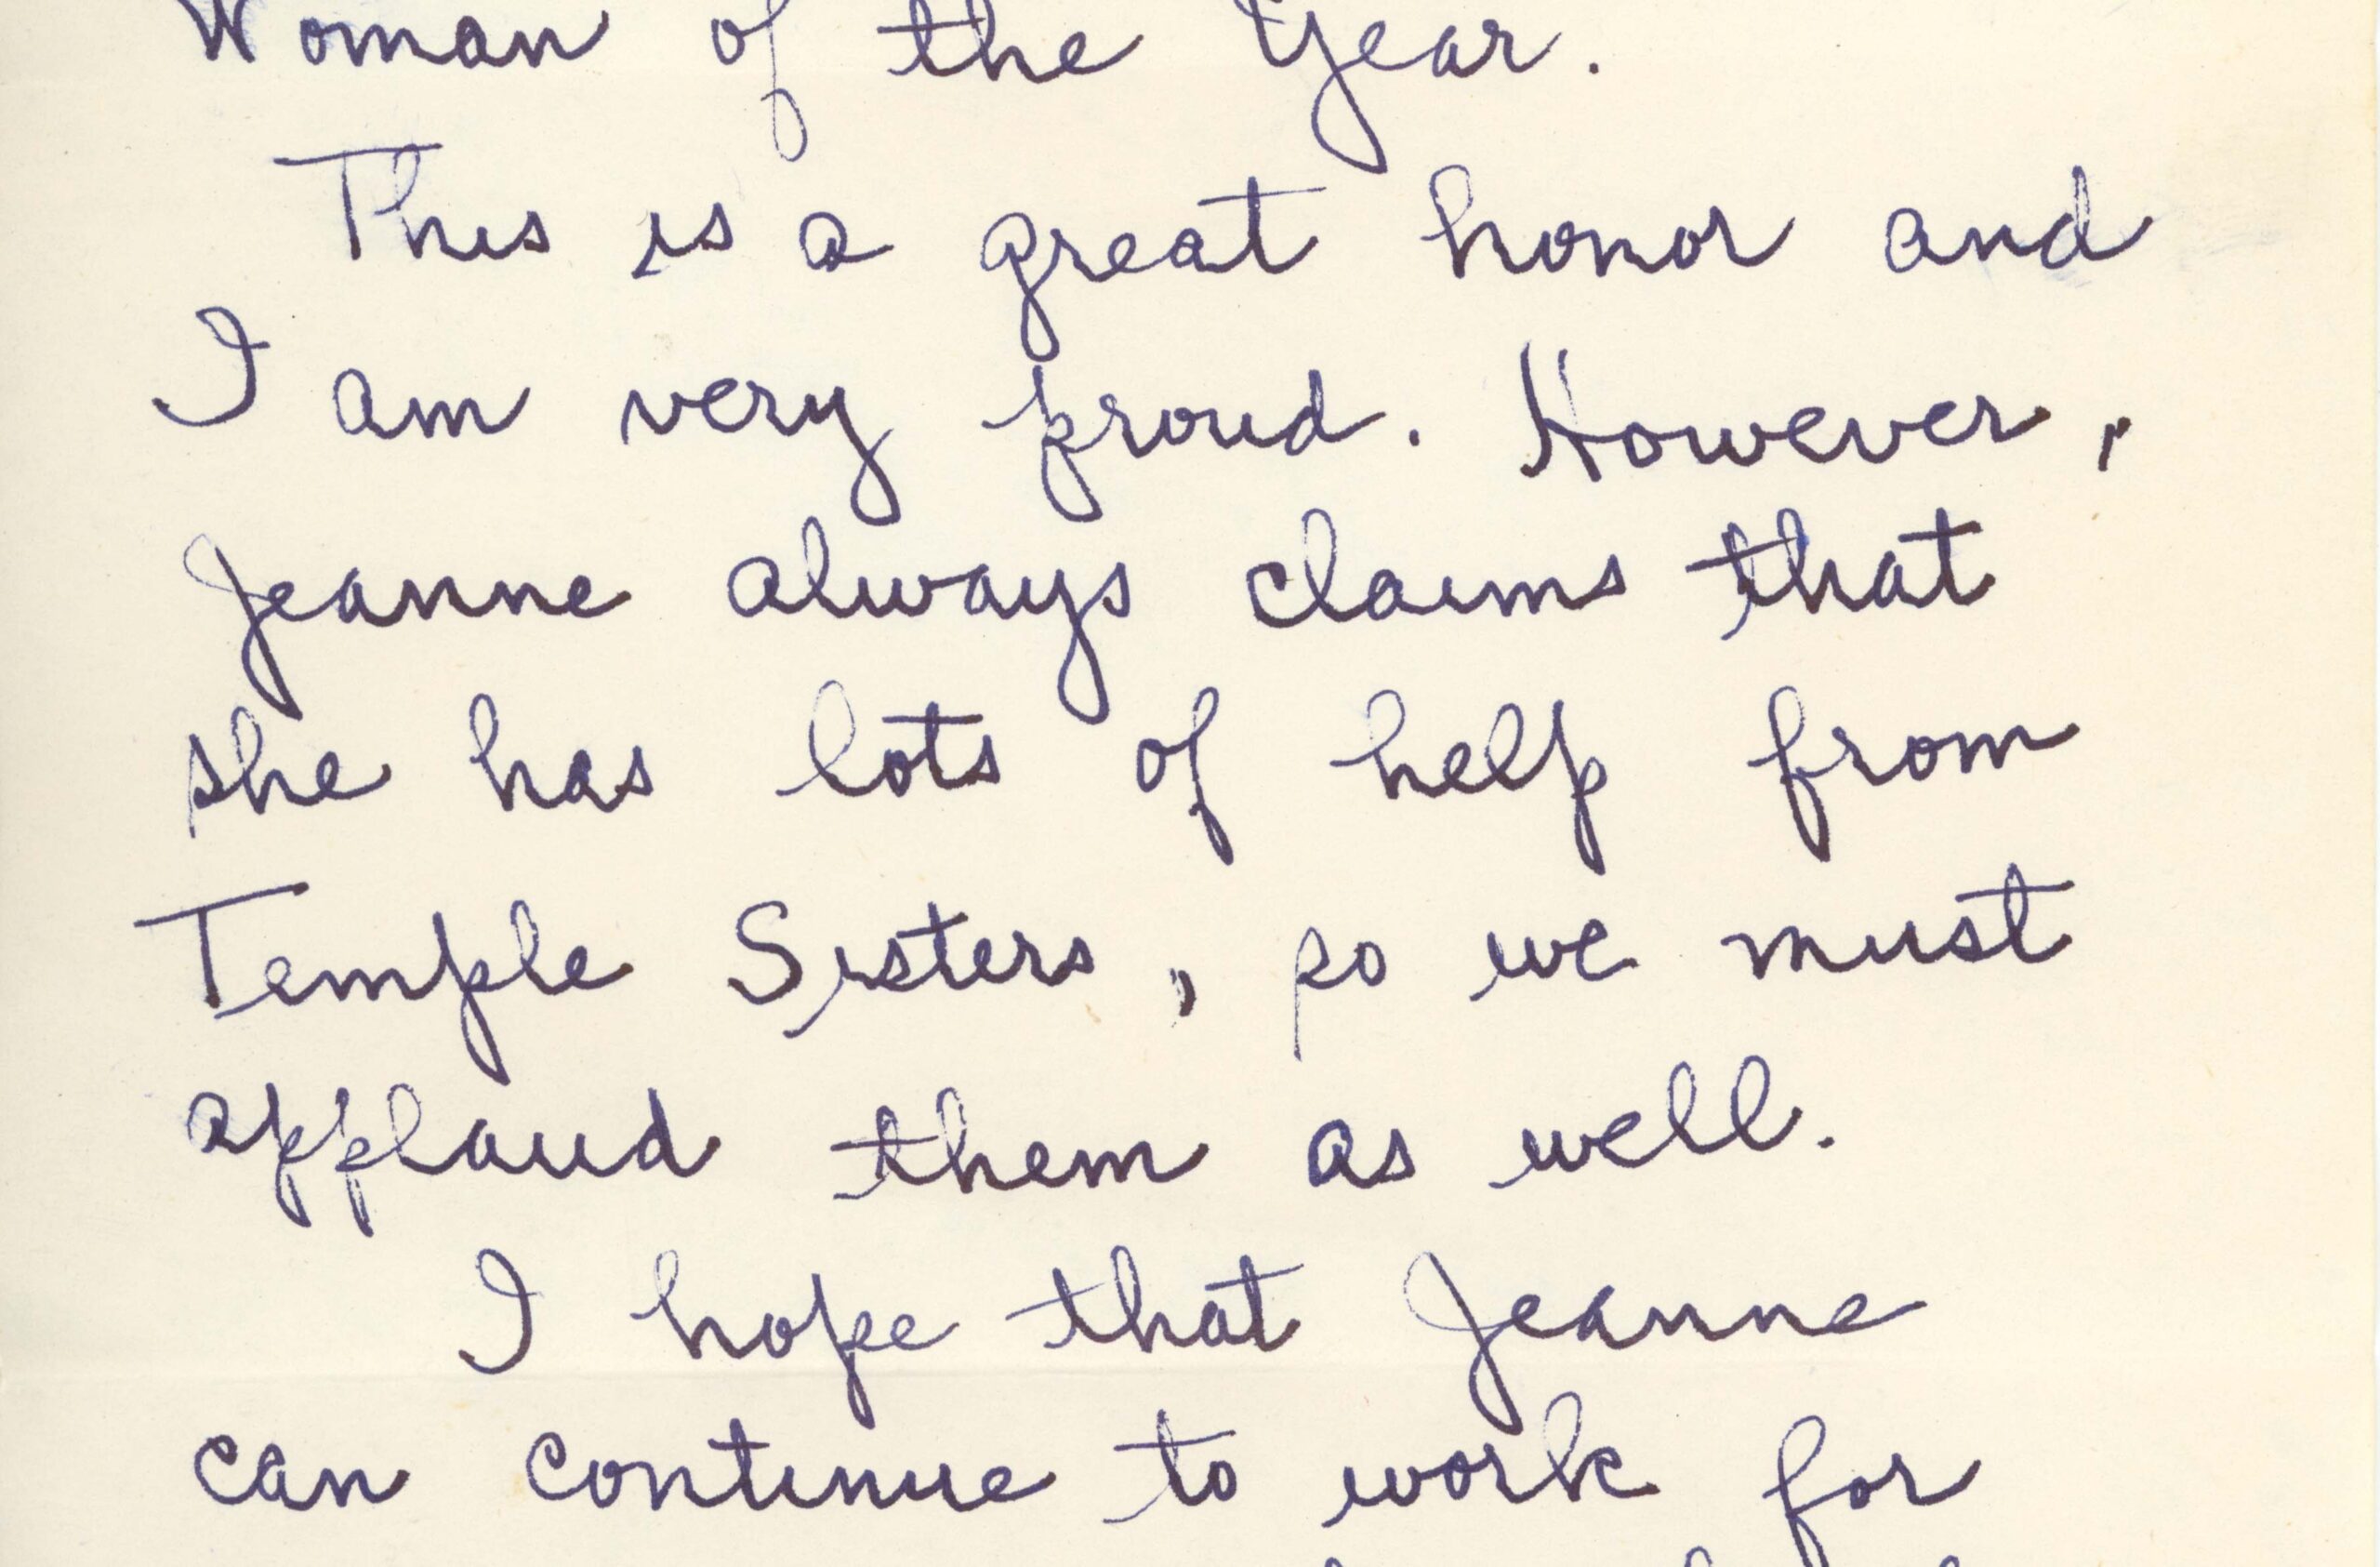 Woman of the Year.
This is a great honor and
I am very proud. However,
Jeanne always claims that
she has lots of help from
Temple Sisters, so we must
applaud them as well.
I hope that Jeanne
can continue to work for